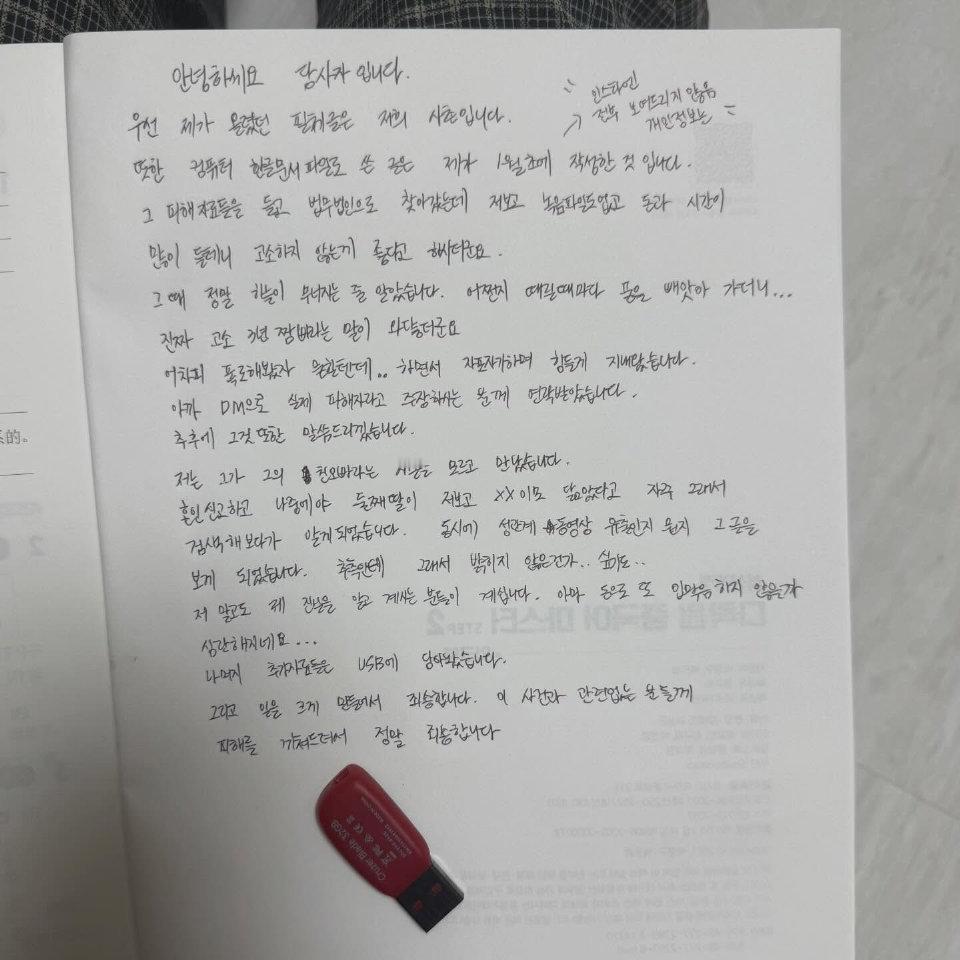 안녕하세요 당사자입니다.
인스타엔
전부 보여드리지 않음
개인정보는
우선 제가 올렸던 필체글은 저희 사촌입니다.
또한 컴퓨터 한글문서파일로 쓴 글은 제가 1월초에 작성한 것 입니다.
그 피해자료들을 들고 법무법인으로 찾아갔는데 저보고 녹음파일도없고 돈과 시간이
많이 들테니 고소하지 않는게 좋다고 하시더군요.
그때 정말 하늘이 무너지는 줄 알았습니다. 어쩐지 때릴때마다 폰을 빼앗아 가더니...
진짜 고소 3년 짬빠라는 말이 와닿더군요
어차피 폭로해봤자 할텐데.. 하면서 자포자기하며 힘들게 지내왔습니다.
아까 DM으로 실제 피해자라고 주장하시는 분께 연락받았습니다.
추후에 그것 또한 말씀드리겠습니다.
저는 그가 그의 친오빠라는 사실을 모르고 만났습니다.
혼인신고하고 나중에야 둘째딸이 저보고 XX이모 닮았다고 자주 그래서
검색해보다가 알게되었습니다. 동시에 성관계 동영상 유출인지 뭔지 그 글을
보게 되었습니다. 추측인데 그래서 밝히지 않은건가.. 싶기도..
저 말고도 제 진실을 알고 계시는 분들이 계십니다. 아마 돈으로 또 입막음 하지 않을까
심란해지네요...
나머지 추가자료들은 USB에 담아놨습니다.
그리고 일을 크게 만들어서 죄송합니다. 이 사건과 관련없는 분들께
피해를 끼쳐드려서 정말 죄송합니다
Cruzer Blade 32GB
系的。
2